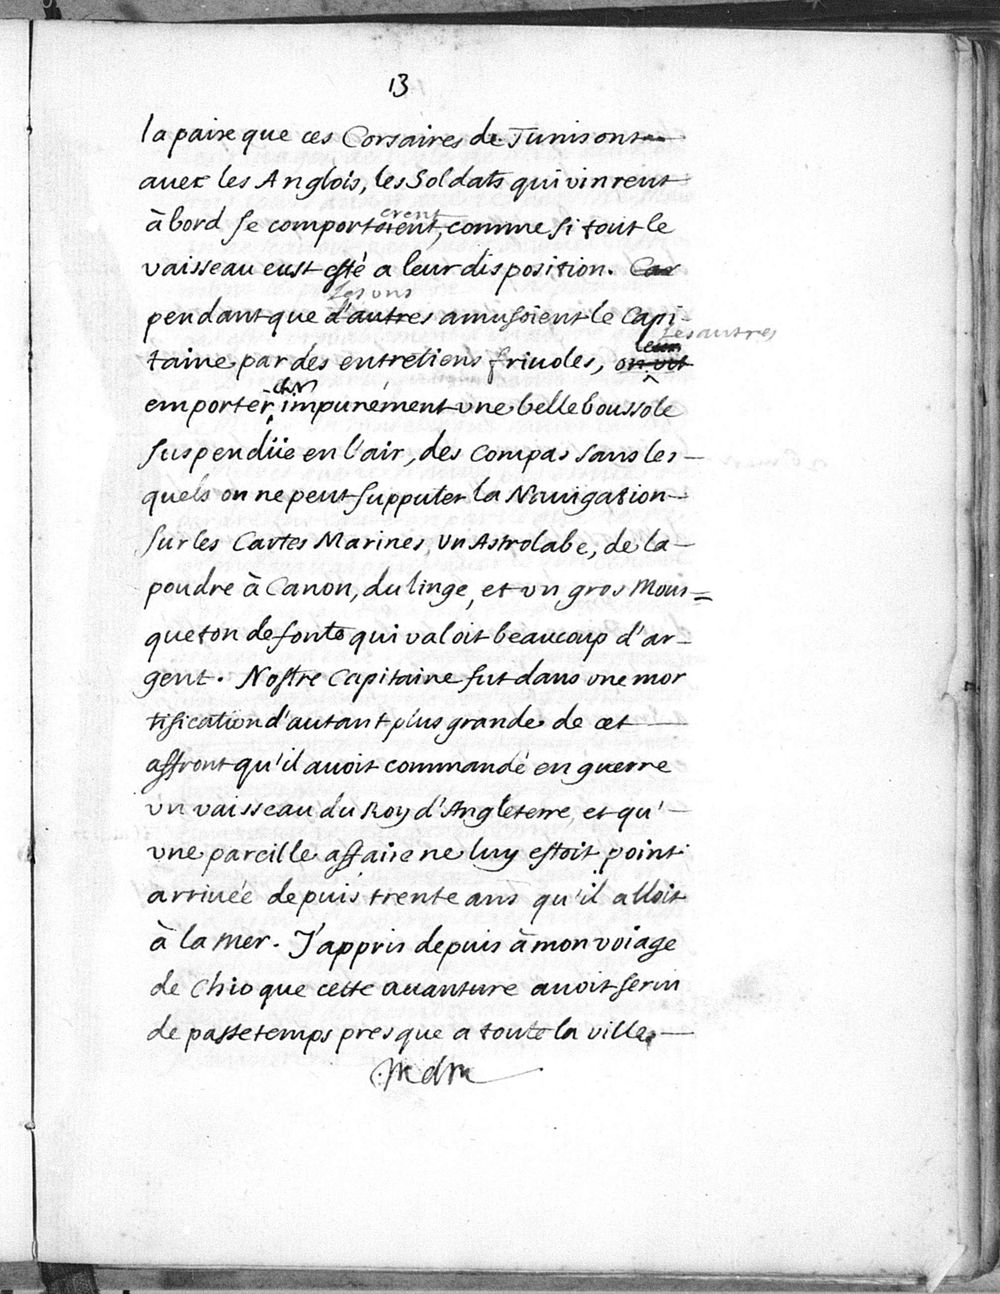 13
la paix que ces Corsaires de Tunis ont
avec les Anglois, les Soldats qui vinrent
erent
à bord se comportoient, comme si tout le
vaisseau eust esté a leur disposition. Car
Les uns
pendant que d'autres amusoient le Capi
Les autres
leur
taine par des entretiens friuoles, on vit
emporter impunément vne belle boussole
suspendüe en l'air, des Compas sans les-
quels on ne peut supputer la Nauigation
sur les Cartes Marines, un Astrolabe, de la
poudre à Canon, du linge, et vn gros Mous=
queton de fonte qui valoit beaucoup d'ar-
gent. Nostre Capitaine fut dans vne mor
tification d'autant plus grande de cet
affront qu'il auoit commandé en guerre
vn vaisseau du Roy d'Angleterre, et qu'
vne pareille affaire ne luy estoit point
arriuée depuis trente ans qu'il alloit
à la mer. J'appris depuis à mon voiage
de Chio que cette auanture auoit serui
de passetemps presque a toute la ville.